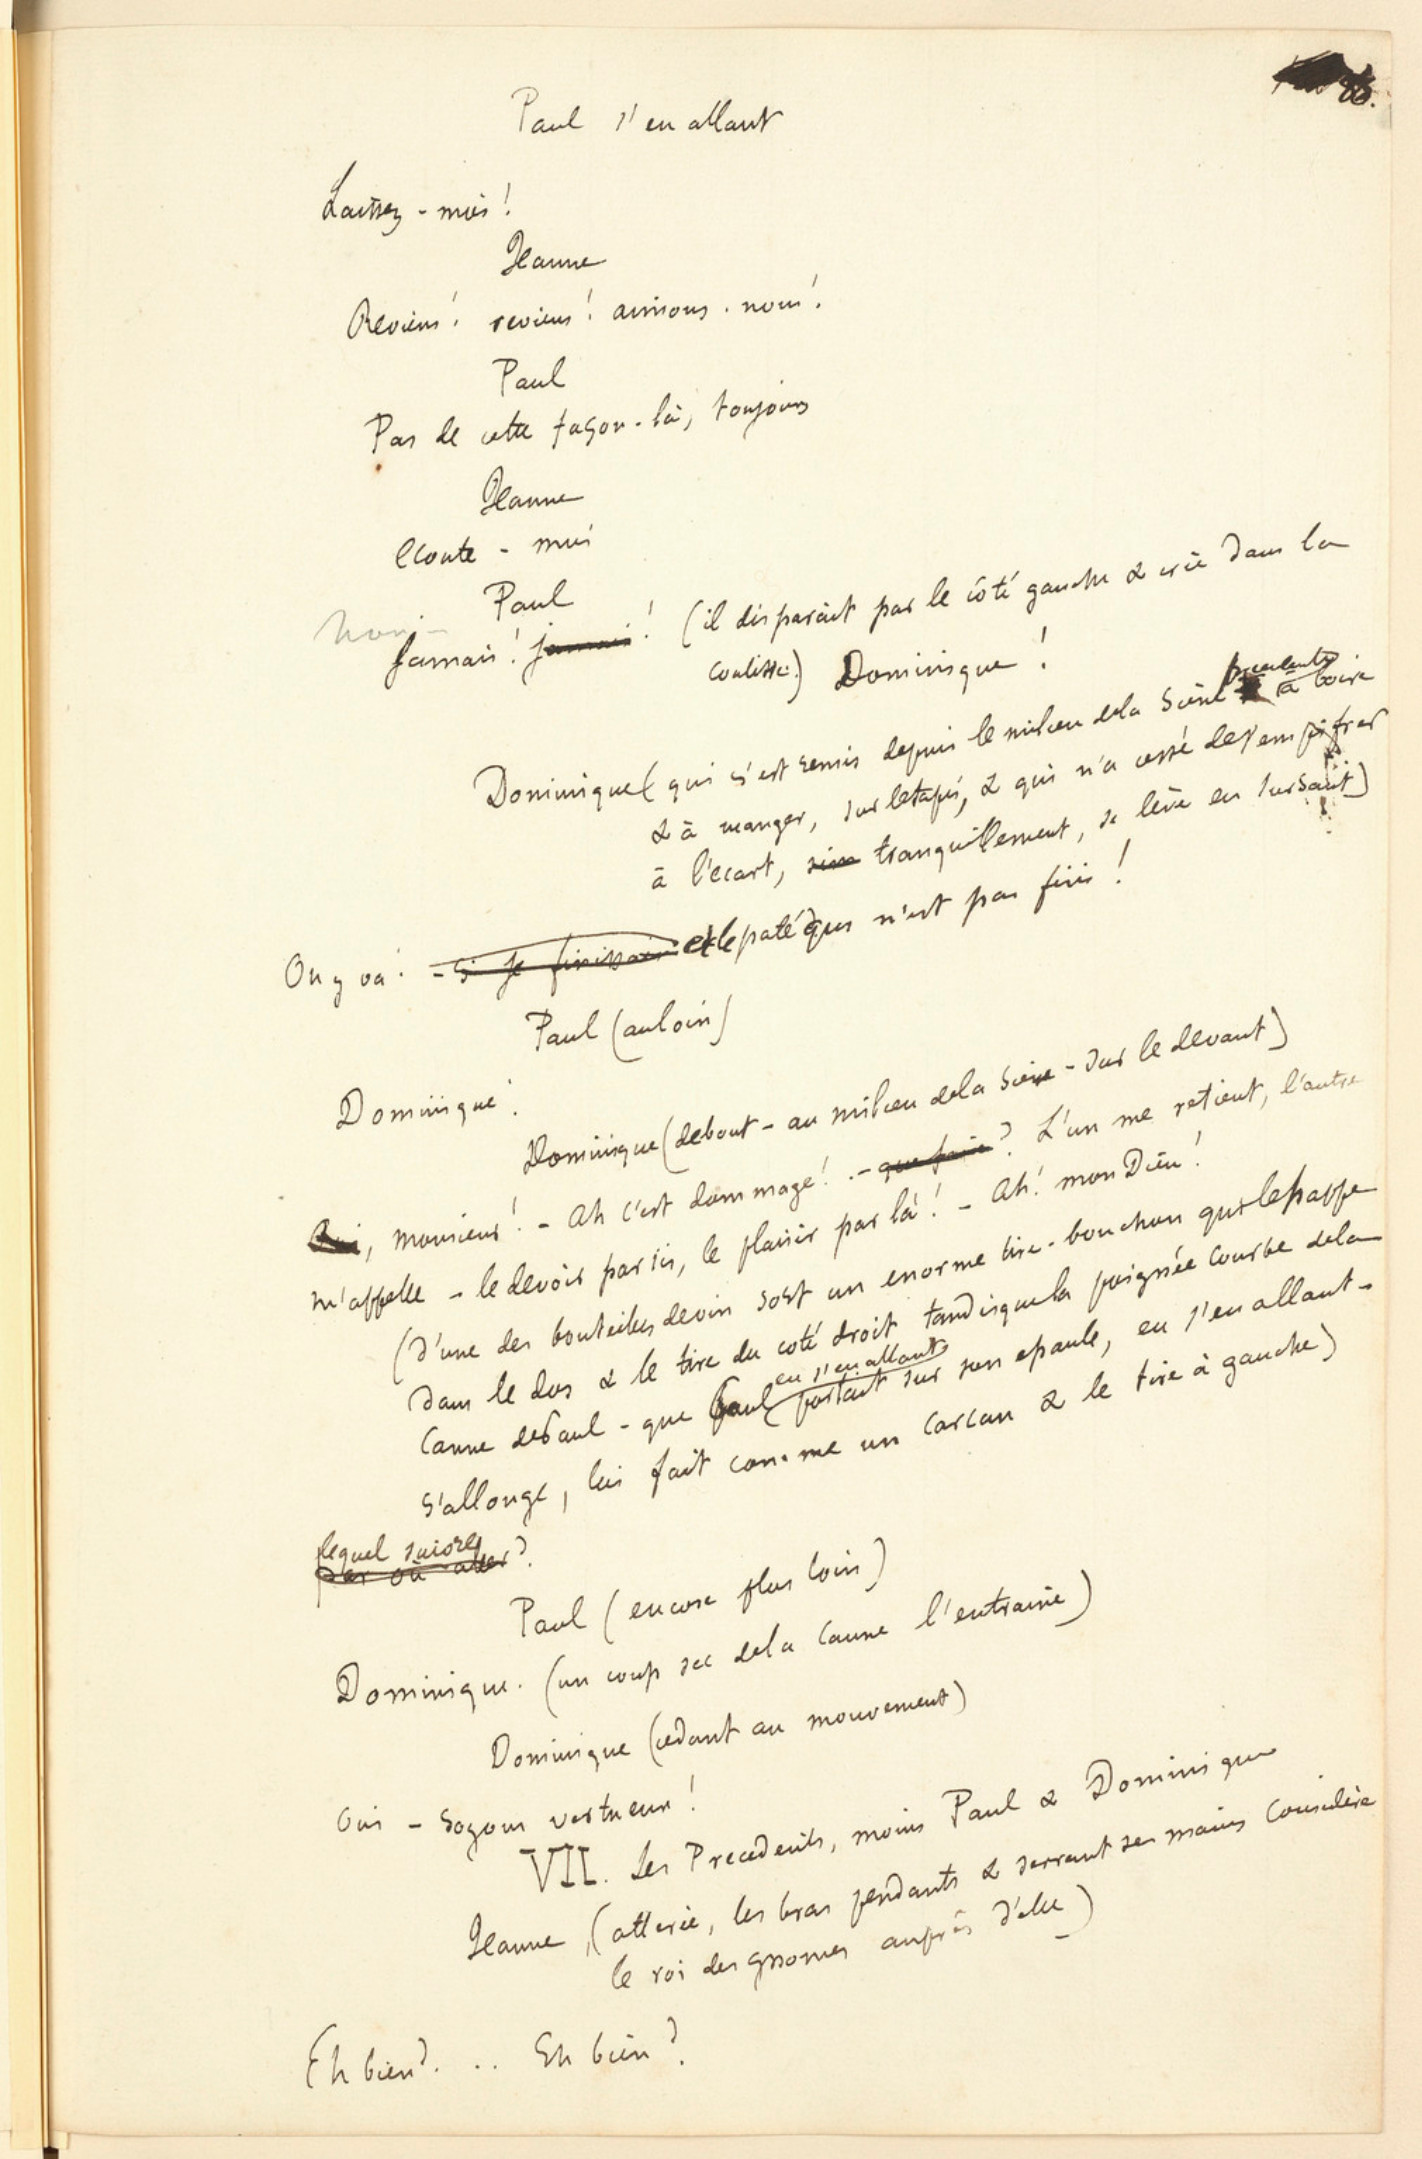 86.
Paul s'en allant
Laissez-moi!
Jeanne
Reviens! reviens! aimons-nous!
Paul
Pas de cette façon-là, toujours
Jeanne
Ecoute-moi
Paul
non-
Jamais! jamais! (il disparait par le côté gauche & crie dans la
coulisse.) Dominique!
precedente
Dominique (qui s'est remis depuis le milieu dela Scène à boire
& à manger, sur letapis, & qui n'a cessé des'empiffrer
à l'ecart, tranquillement, se lève en sursaut)
On y va! - si je finissais et le paté qui n'est pas fini!
Paul (auloin)
Dominique!
Dominique (debout - au milieu dela Scène - sur le devant)
Oui, monsieur! - Ah c'est dommage! - que faire? L'un me retient, l'autre
m'appelle - le devoir par ici, le plaisir par là! - Ah! mon Dieu!
(d'une des bouteilles devin sort un enorme tire-bouchon qui lehappe
dans le dos & le tire du coté droit tandisquela poignée courbe dela
en s'en allant
Canne dePaul - que Paul portait sur son epaule, en s'en allant -
s'allonge, lui fait comme un carcan & le tire à gauche)
lequel suivre
par où aller?
Paul (encore plus loin)
Dominique. (un coup sec dela Canne l'entraine)
Dominique (cedant au mouvement)
Oui - Soyons vertueux!
VII. Les Precedents, moins Paul & Dominique
Jeanne, (atterée, les bras pendants & serrant ses mains considère
le roi des gnomes auprès d'elle)
Eh bien? ... Eh bien?